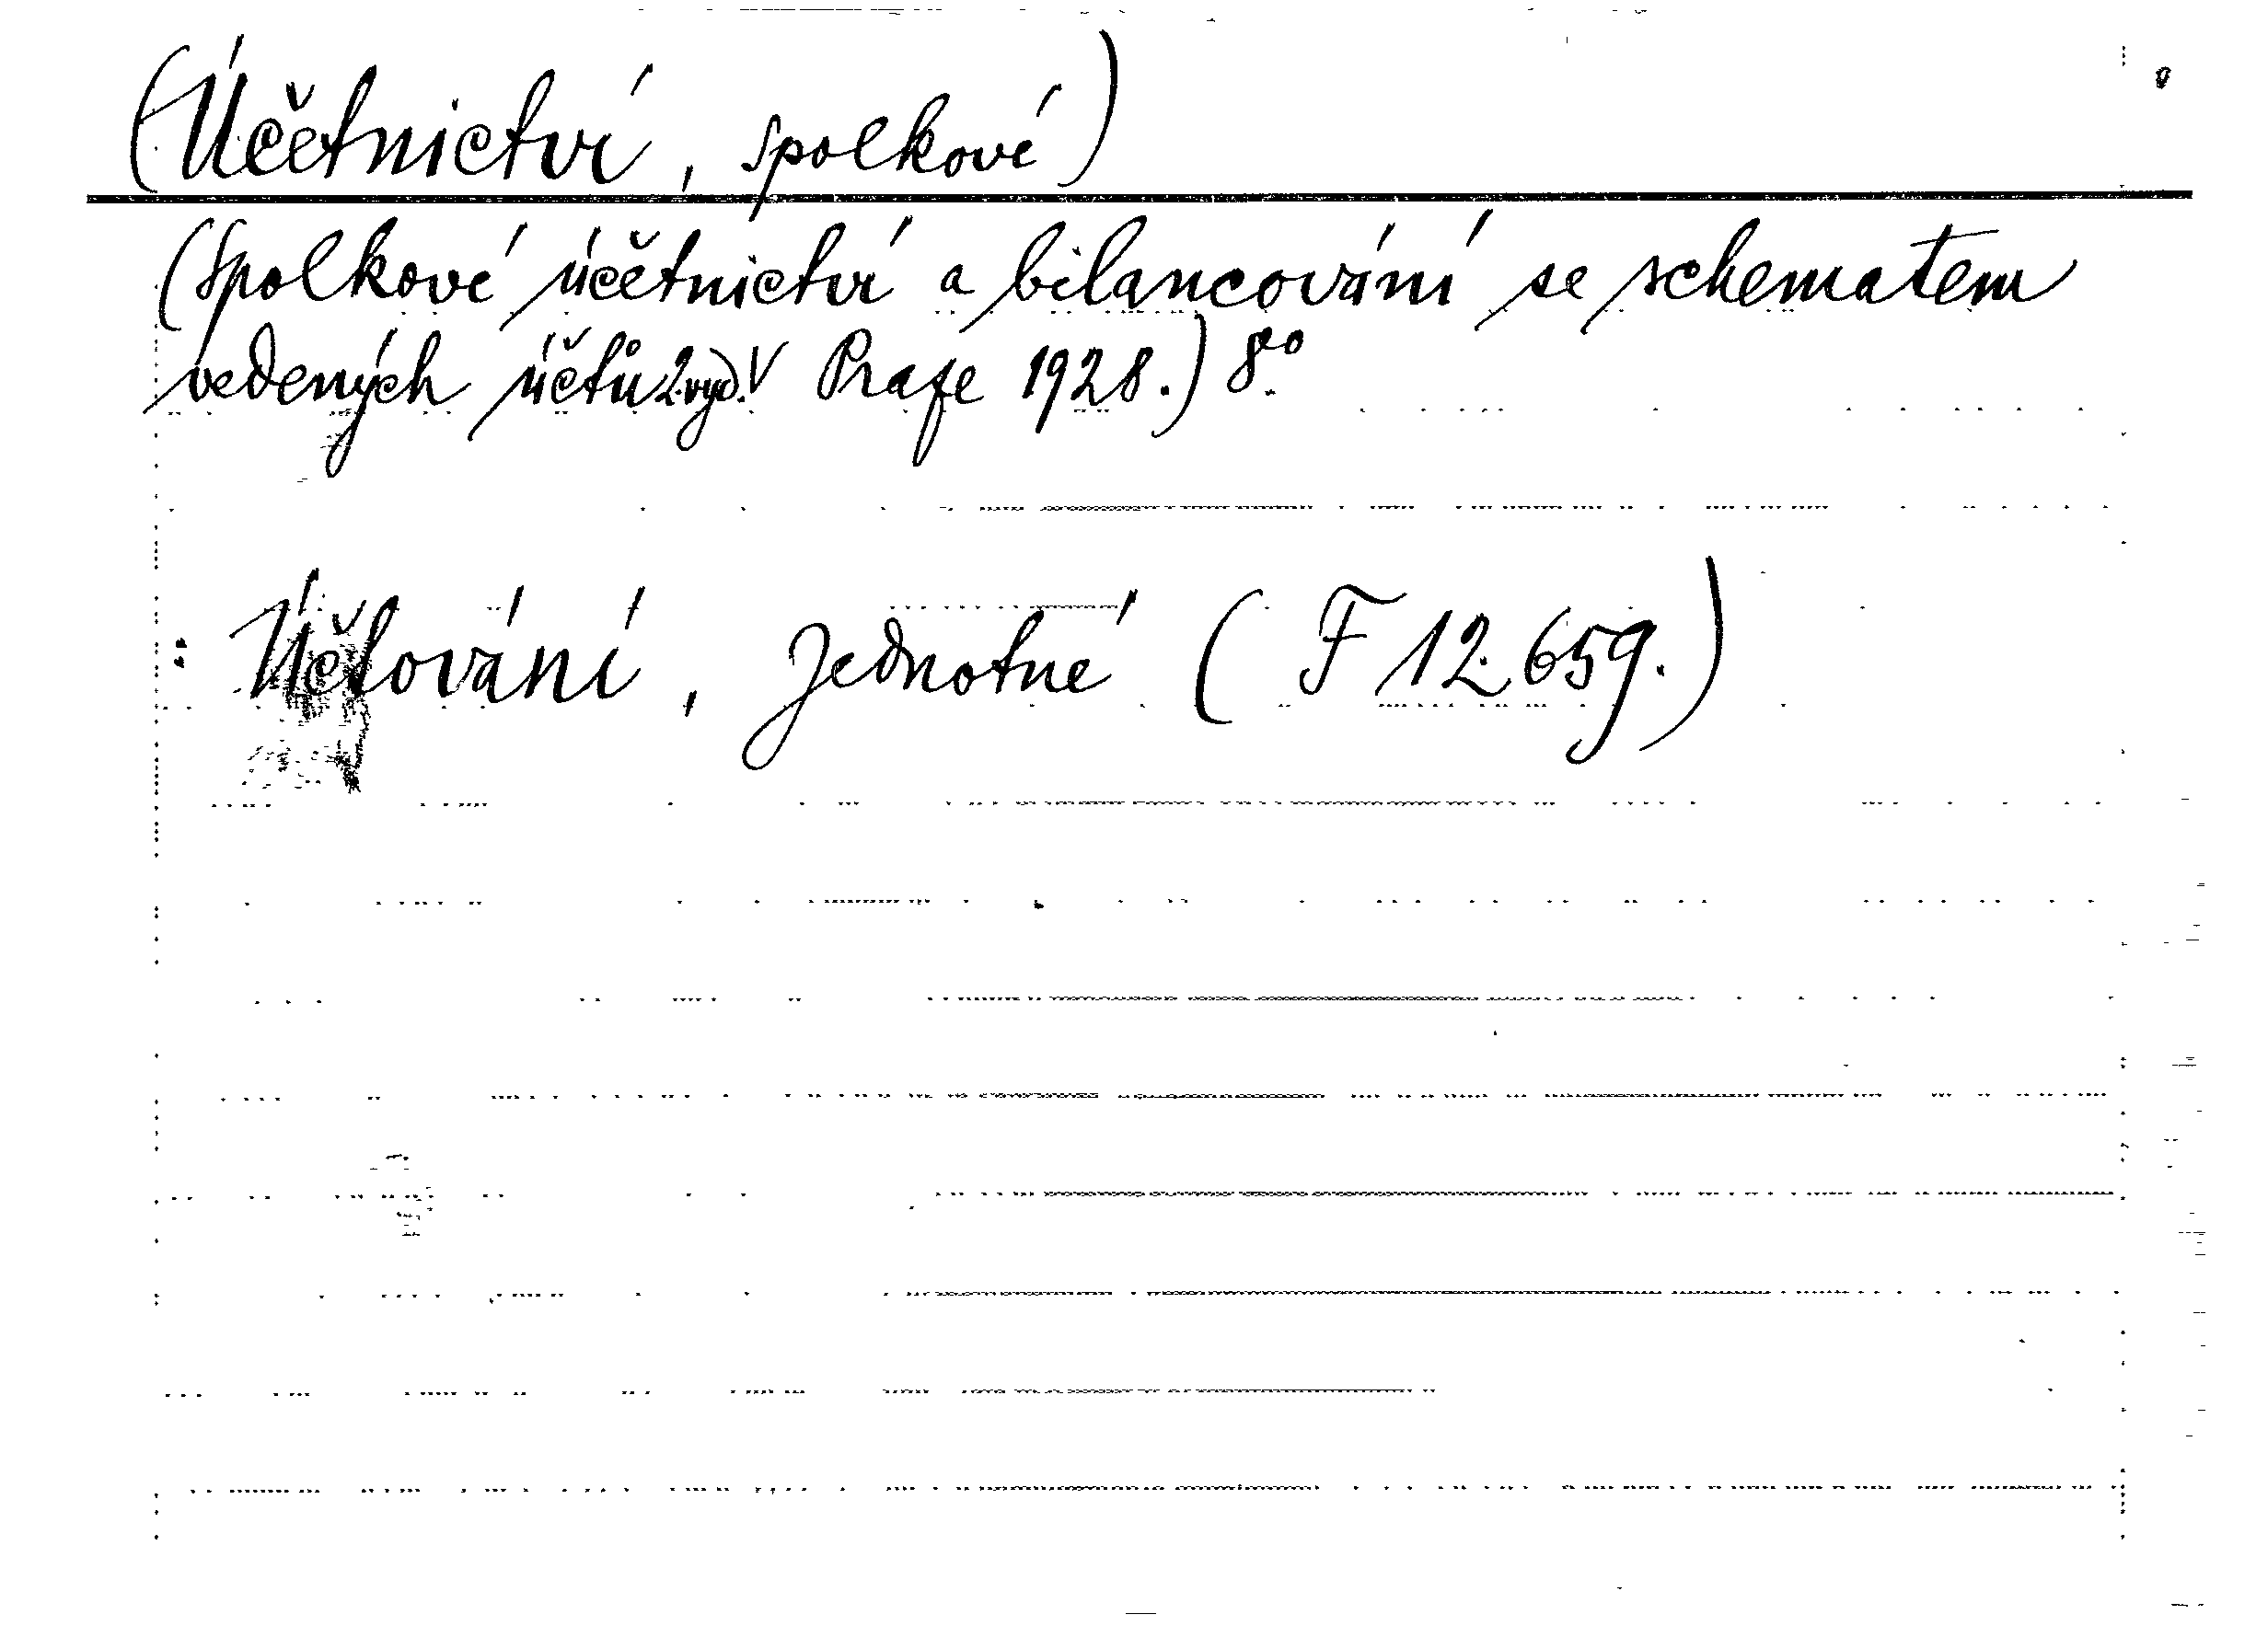 (Účetnictví, spolkové)
(Spolkové účetnictví a bilancování se schematem
vedených účtů 2. vyd. V Praze 1928.) 8°.
: Účtování, jednotné (F 12.659.)